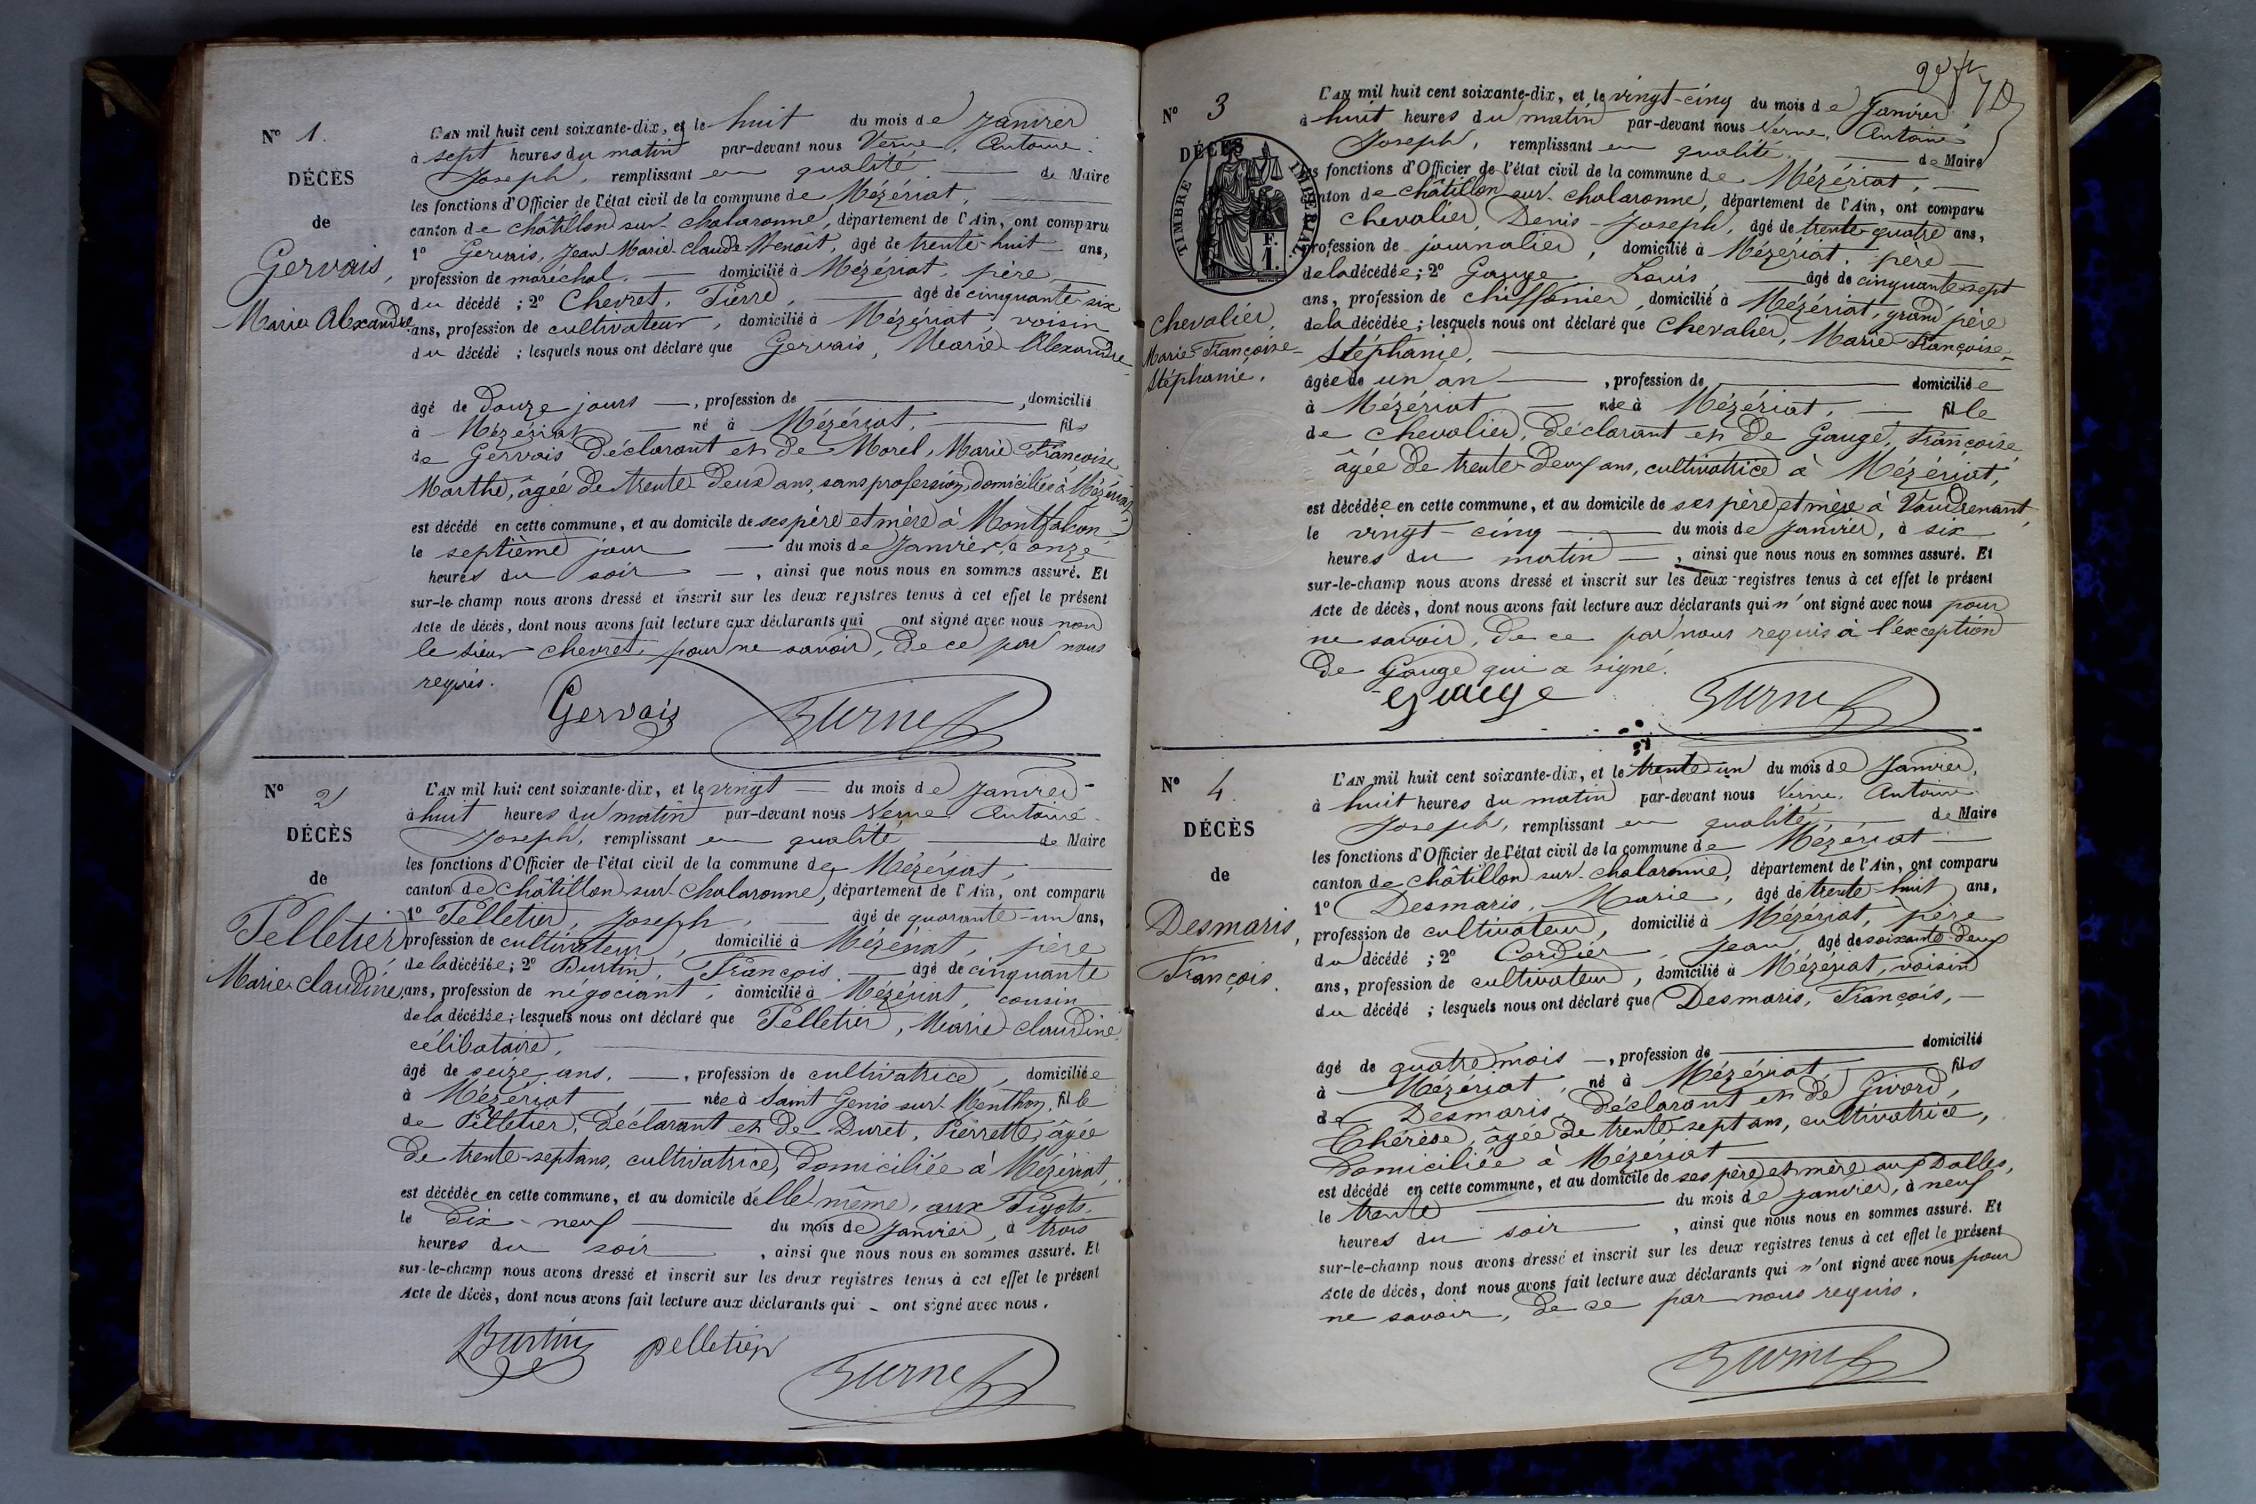 N° 1.
DÉCÈS
de
Gervais,
Marie Alexandre
L'AN mil huit cent soixante-dix, et le huit du mois de Janvier
à sept heures du matin par-devant nous Verne, Antoine
Joseph, remplissant en qualité de Maire
les fonctions d'Officier de l'état civil de la commune de Mézériat,
canton de châtillon sur chalaronne, département de l'Ain, ont comparu
1° Gervais, Jean Marie Claude Benoit, âgé de trente-huit ans,
profession de maréchal domicilié à Mézériat, père
du décédé ; 2° Chevret, Pierre, âgé de cinquante-six
ans, profession de cultivateur, domicilié à Mézériat, voisin
du décédé ; lesquels nous ont déclaré que Gervais, Marie Alexandre
âgé de douze jours , profession de , domicilié
à Mézériat né à Mézériat, fils
de Gervais déclarant et de Morel, Marie Françoise
Marthe, âgée de trente deux ans, sans profession, domiciliée à Mézériat,
est décédé en cette commune, et au domicile de ses père et mère à Montfalcon
le septième jour du mois de Janvier, à onze
heures du soir , ainsi que nous nous en sommes assuré. Et
sur-le-champ nous avons dressé et inscrit sur les deux registres tenus à cet effet le présent
Acte de décès, dont nous avons fait lecture aux déclarants qui ont signé avec nous non
le sieur chevret, pour ne savoir, de ce par nous
requis.
Gervais Verne
N° 2
DÉCÈS
de
Pelletier
Marie claudine
L'AN mil huit cent soixante-dix, et le vingt du mois de Janvier
à huit heures du matin par-devant nous Verne Antoine
Joseph, remplissant en qualité de Maire
les fonctions d'Officier de l'état civil de la commune de Mézériat,
canton de châtillon sur chalaronne, département de l'Ain, ont comparu
1° Pelletier, Joseph, âgé de quarante-un ans,
profession de cultivateur, domicilié à Mézériat, père
de la décédée ; 2° Burtin, François âgé de cinquante
ans, profession de négociant, domicilié à Mézériat, cousin
de la décédée ; lesquels nous ont déclaré que Pelletier, Marie claudine
célibataire,
âgé de seize ans. , profession de cultivatrice, domiciliée
à Mézériat, née à Saint Genis sur Menthon, fille
de Pelletier, déclarant et de Duret, Pierrette, âgée
de trente-sept ans, cultivatrice, domiciliée à Mézériat,
est décédée en cette commune, et au domicile d'elle même, aux
le dix-neuf du mois de Janvier, à trois
heures du soir , ainsi que nous nous en sommes assuré. Et
sur-le-champ nous avons dressé et inscrit sur les deux registres tenus à cet effet le présent
Acte de décès, dont nous avons fait lecture aux déclarants qui - ont signé avec nous.
Burtin pelletier Verne
N° 3
DÉCÈS
TIMBRE IMPERIAL
F.
1.
Chevalier,
Marie-Françoise-
Stéphanie.
L'AN mil huit cent soixante-dix, et le vingt-cinq du mois de Janvier
à huit heures du matin par-devant nous Verne, Antoine
Joseph, remplissant en qualité de Maire
les fonctions d'Officier de l'état civil de la commune de Mézériat,
canton de châtillon sur chalaronne, département de l'Ain, ont comparu
chevalier, Denis-Joseph, âgé de trente-quatre ans,
profession de journalier, domicilié à Mézériat, père
de la décédée ; 2° Gauge Louis, âgé de cinquante-sept
ans, profession de chiffonier, domicilié à Mézériat, grand père
de la décédée ; lesquels nous ont déclaré que Chevalier, Marie-Françoise-
Stéphanie,
âgée de un an , profession de domiciliée
à Mézériat née à Mézériat, fille
de chevalier, déclarant et de Gauge, Françoise,
âgée de trente-deux ans, cultivatrice à Mézériat,
est décédée en cette commune, et au domicile de ses père et mère à Vaudrenant,
le vingt-cinq du mois de Janvier, à six
heures du matin , ainsi que nous nous en sommes assuré. Et
sur-le-champ nous avons dressé et inscrit sur les deux registres tenus à cet effet le présent
Acte de décès, dont nous avons fait lecture aux déclarants qui n'ont signé avec nous pour
ne savoir, de ce par nous requis à l'exception
de Gauge qui a signé.
Gauge Verne
N° 4
DÉCÈS
de
Desmaris,
François.
L'AN mil huit cent soixante-dix, et le trente-un du mois de Janvier,
à huit heures du matin par-devant nous Verne, Antoine
Joseph, remplissant en qualité de Maire
les fonctions d'Officier de l'état civil de la commune de Mézériat
canton de châtillon sur chalaronne, département de l'Ain, ont comparu
1° Desmaris, Marie, âgé de trente-huit ans,
profession de cultivateur, domicilié à Mézériat, père
du décédé ; 2° Cordier, Jean, âgé de soixante-deux
ans, profession de cultivateur, domicilié à Mézériat, voisin
du décédé ; lesquels nous ont déclaré que Desmaris, François,
âgé de quatre mois , profession de domicilié
à Mézériat, né à Mézériat fils
de Desmaris, déclarant et de Givord,
Thérèse, âgée de trente-sept ans, cultivatrice,
domiciliée à Mézériat
est décédé en cette commune, et au domicile de ses père et mère aux Dalles,
le trente du mois de Janvier, à neuf
heures du soir , ainsi que nous nous en sommes assuré. Et
sur-le-champ nous avons dressé et inscrit sur les deux registres tenus à cet effet le présent
Acte de décès, dont nous avons fait lecture aux déclarants qui n'ont signé avec nous pour
ne savoir, de ce par nous requis.
Verne